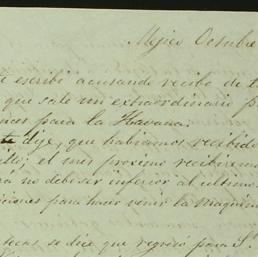 Mejico Octubre
te escribi acusando recibo de t
que sale un extraordinario p
para la Havana.
te dije, que habiamos recibido
el mes proximo recibiremos
no debe ser inferior al ultimo
para hacer venir la maquina
se dice que regresó para S.